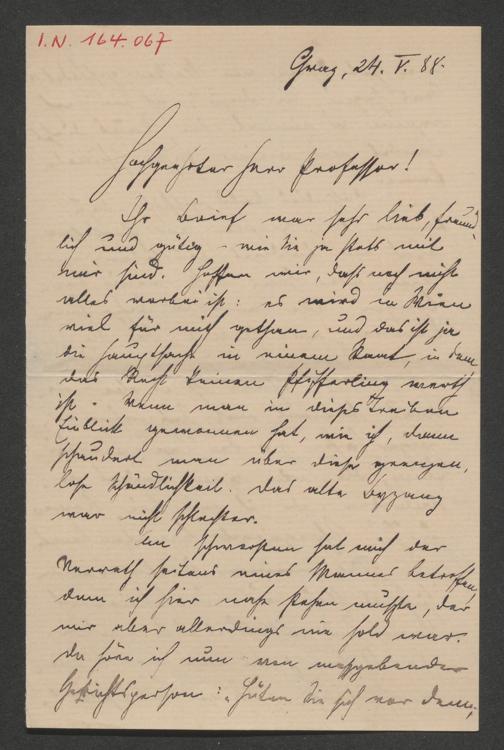 I.N. 164.067
Graz, 24. V. 88.
Hochgeehrter Herr Professor!
Ihr Brief war sehr lieb, freund-
lich und gütig – wie Sie ja stets mit
mir sind. Hoffen wir, daß noch nicht
alles vorbei ist: es wird in Wien
viel für mich gethan, und das ist ja
die Hauptsache in einem Staat, in dem
das Recht keinen Pfifferling werth
ist. Wenn man in dieses Treiben
Einblick gewonnen hat, wie ich, dann
schaudert man über diese grenzen-
lose Schändlichkeit. Das alte Byzanz
war nicht schlechter.
Am schwersten hat mich der
Verrath seitens eines Mannes betroffen,
dem ich hier nahe stehen mußte, der
mir aber allerdings nie hold war.
Da höre ich nun von maßgebender
Gerichtsperson: „Hüten Sie sich vor dem,